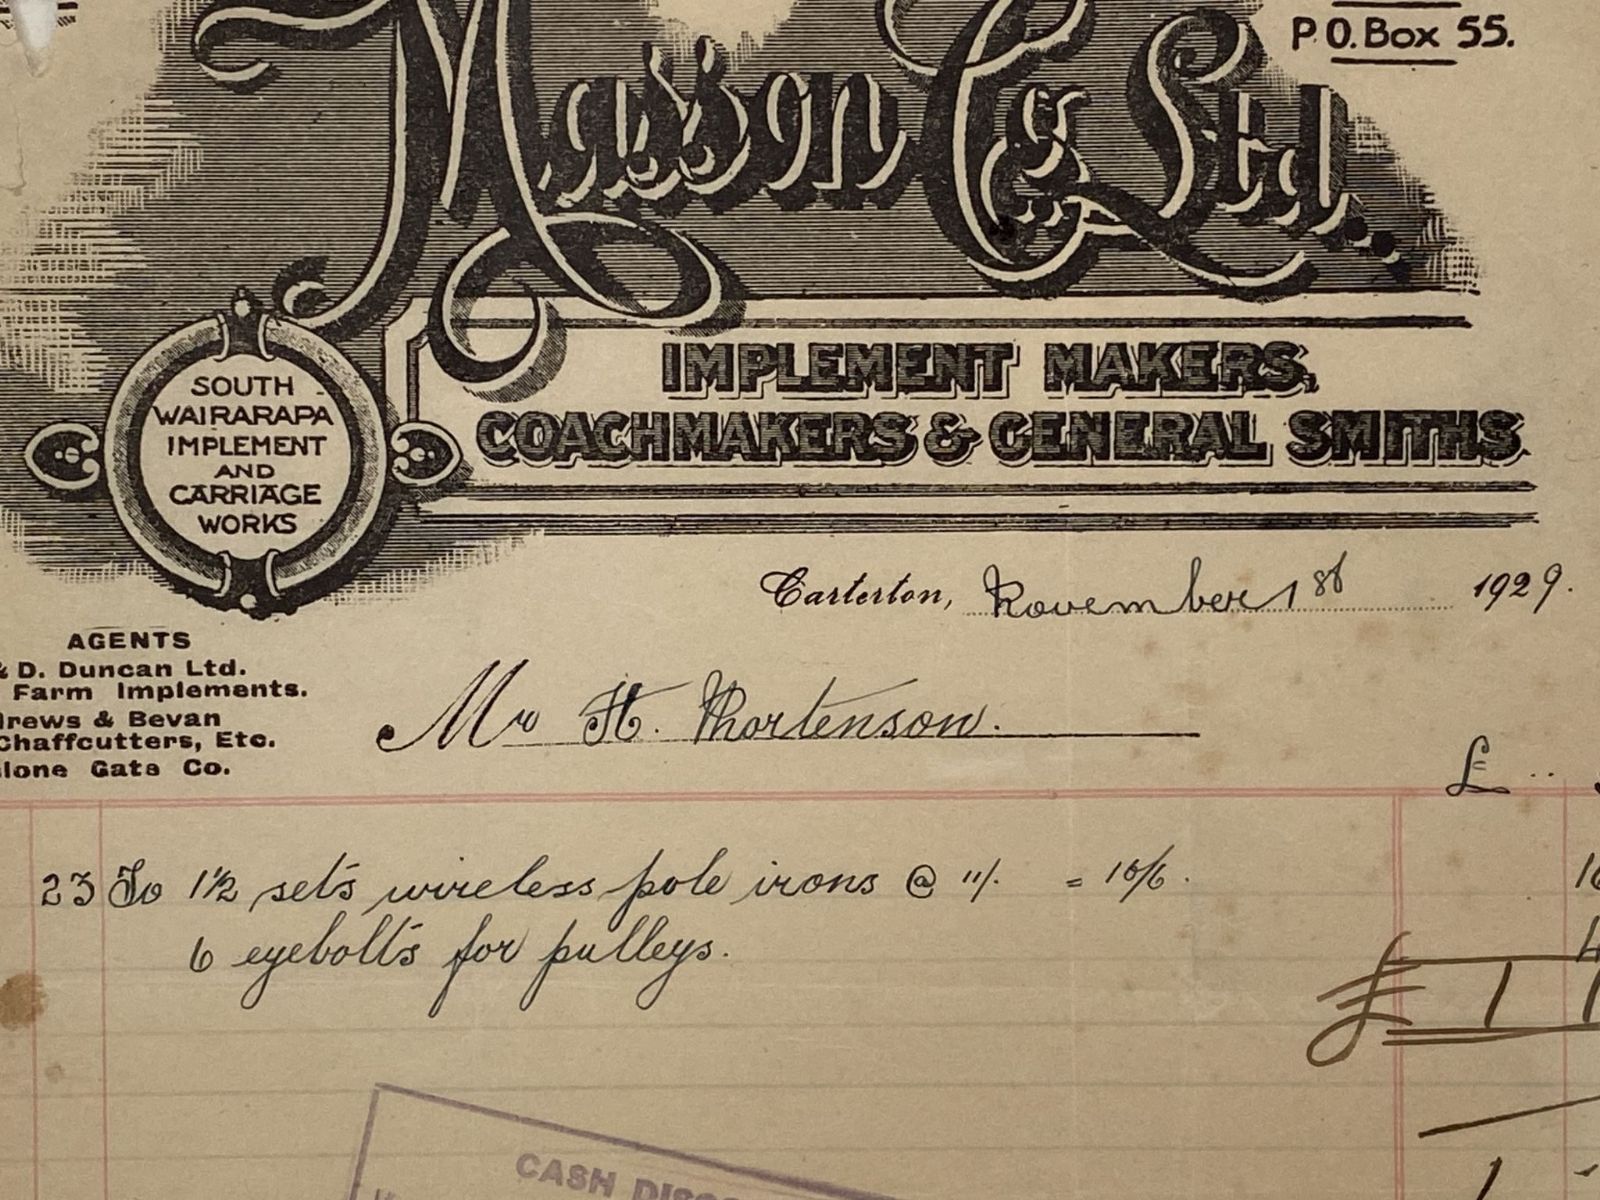 P.O. Box 55.
Masson Co. Ltd.
IMPLEMENT MAKERS,
COACHMAKERS & GENERAL SMITHS.
SOUTH
WAIRARAPA
IMPLEMENT
AND
CARRIAGE
WORKS
Carterton, November 1st 1929.
AGENTS
& D. Duncan Ltd.
Farm Implements.
drews & Bevan
Chaffcutters, Etc.
lone Gate Co.
Mr H. Thortenson.
£
23 To 1½ sets wireless pole irons @ 11/. = 16/6.
6 eyebolts for pulleys.
£ 1
CASH